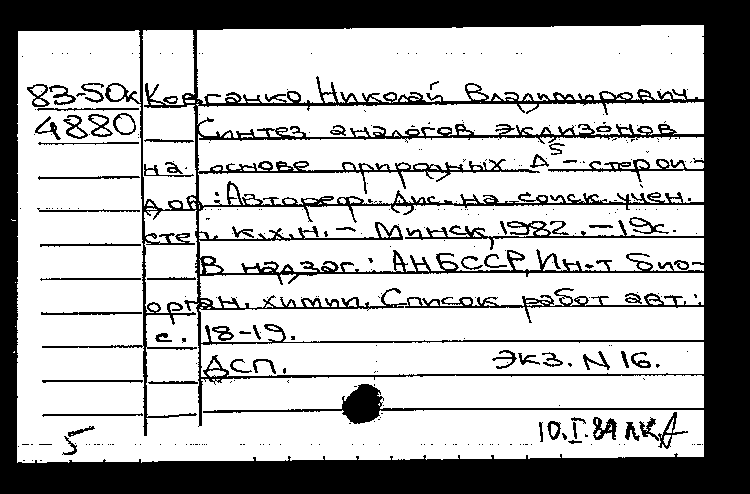 83-50к Ковганко, Николай Владимирович.
4880 Синтез аналогов экдизонов
на основе природных Δ⁵-стерои-
дов: Автореф. Дис. на соиск. учен.
степ. к.х.н. - Минск, 1982. - 19с.
В надзаг.: АН БССР, Ин-т био-
орган. химии. Список работ авт.:
с. 18-19.
ДСП. Экз. N 16.
5 10.I.84 ЛК